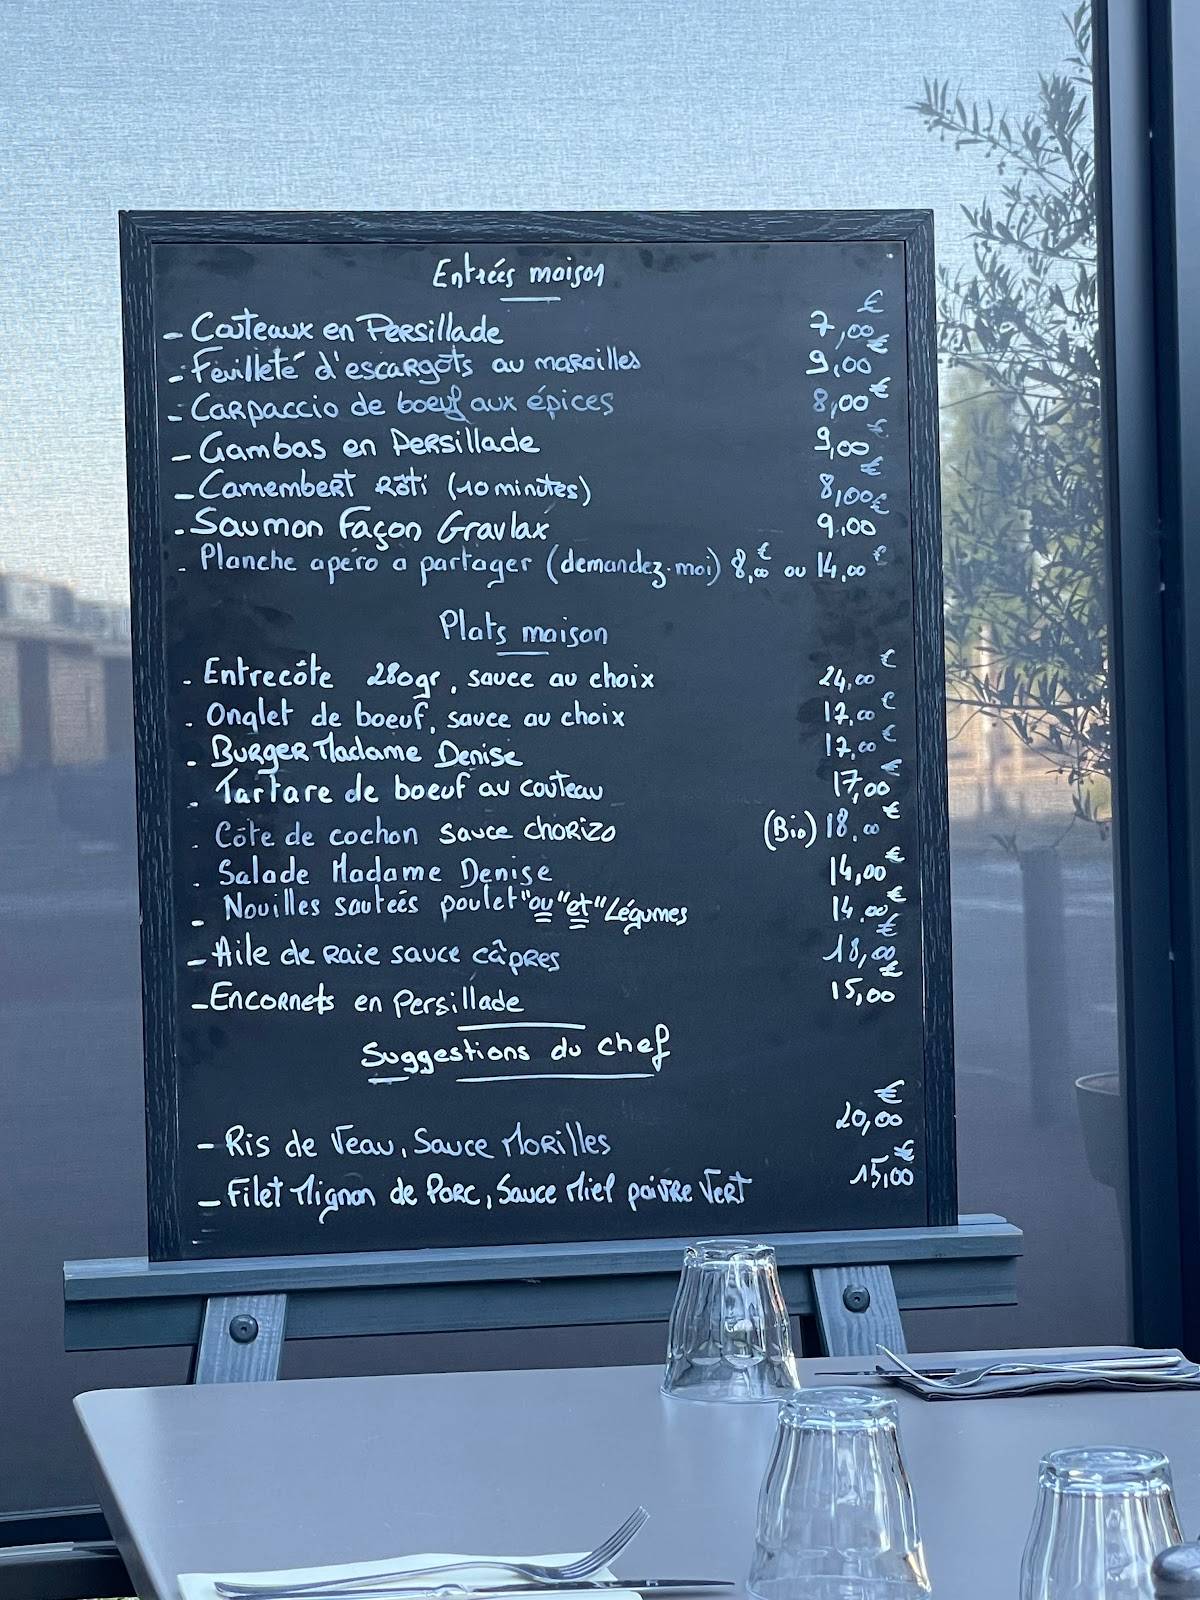 Entrées maison
- Couteaux en Persillade 7,00€
- Feuilleté d'escargots au maroilles 9,00€
- Carpaccio de boeuf aux épices 8,00€
- Gambas en Persillade 9,00€
- Camembert Rôti (10 minutes) 8,00€
- Saumon Façon Gravlax 9.00€
- Planche apéro à partager (demandez-moi) 8,00€ ou 14,00€
Plats maison
- Entrecôte 280gr, sauce au choix 24,00€
- Onglet de boeuf, sauce au choix 17,00€
- Burger Madame Denise 17,00€
- Tartare de boeuf au couteau 17,00€
- Côte de cochon sauce chorizo (Bio) 18,00€
- Salade Madame Denise 14,00€
- Nouilles sautées poulet "ou" "et" Légumes 14,00€
- Aile de Raie sauce câpres 18,00€
- Encornets en Persillade 15,00€
Suggestions du chef
- Ris de Veau, Sauce Morilles 20,00€
- Filet Mignon de Porc, Sauce Miel poivre Vert 15,00€